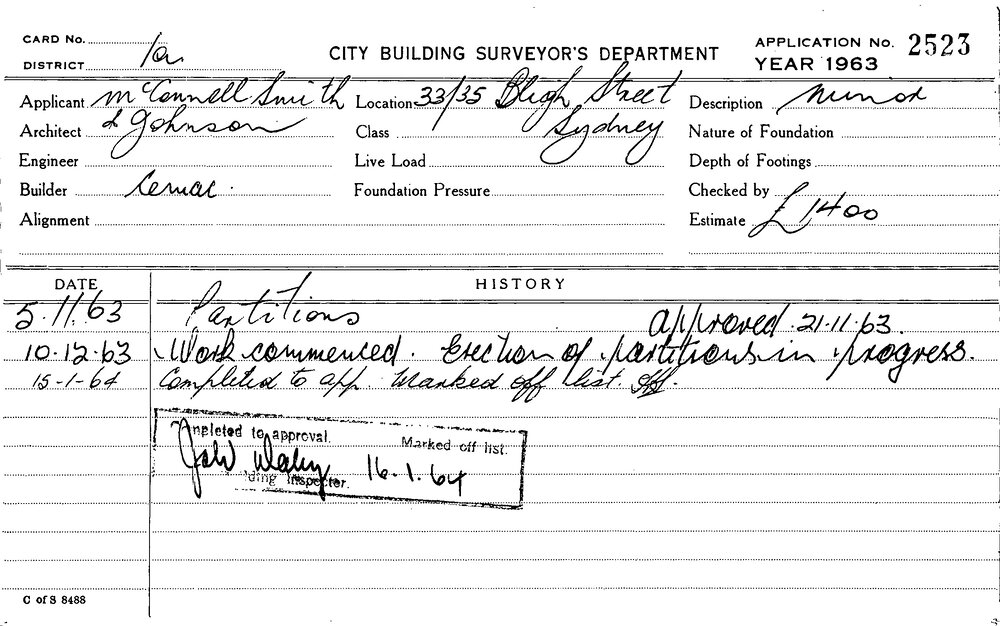 CARD No.
DISTRICT 1a
CITY BUILDING SURVEYOR'S DEPARTMENT
APPLICATION No. 2523
YEAR 1963
Applicant McConnell Smith Location 33/35 Bligh Street Description Minor
Architect & Johnson Class Sydney Nature of Foundation
Engineer Live Load Depth of Footings
Builder Foundation Pressure Checked by
Alignment Estimate £1400
DATE HISTORY
5.11.63 Partitions approved 21.11.63.
10.12.63 Work commenced. Erection of partitions in progress.
15-1-64 Completed to app. Marked off list.
mpleted to approval. Marked off list.
16.1.64
ding Inspector.
C of S 8488